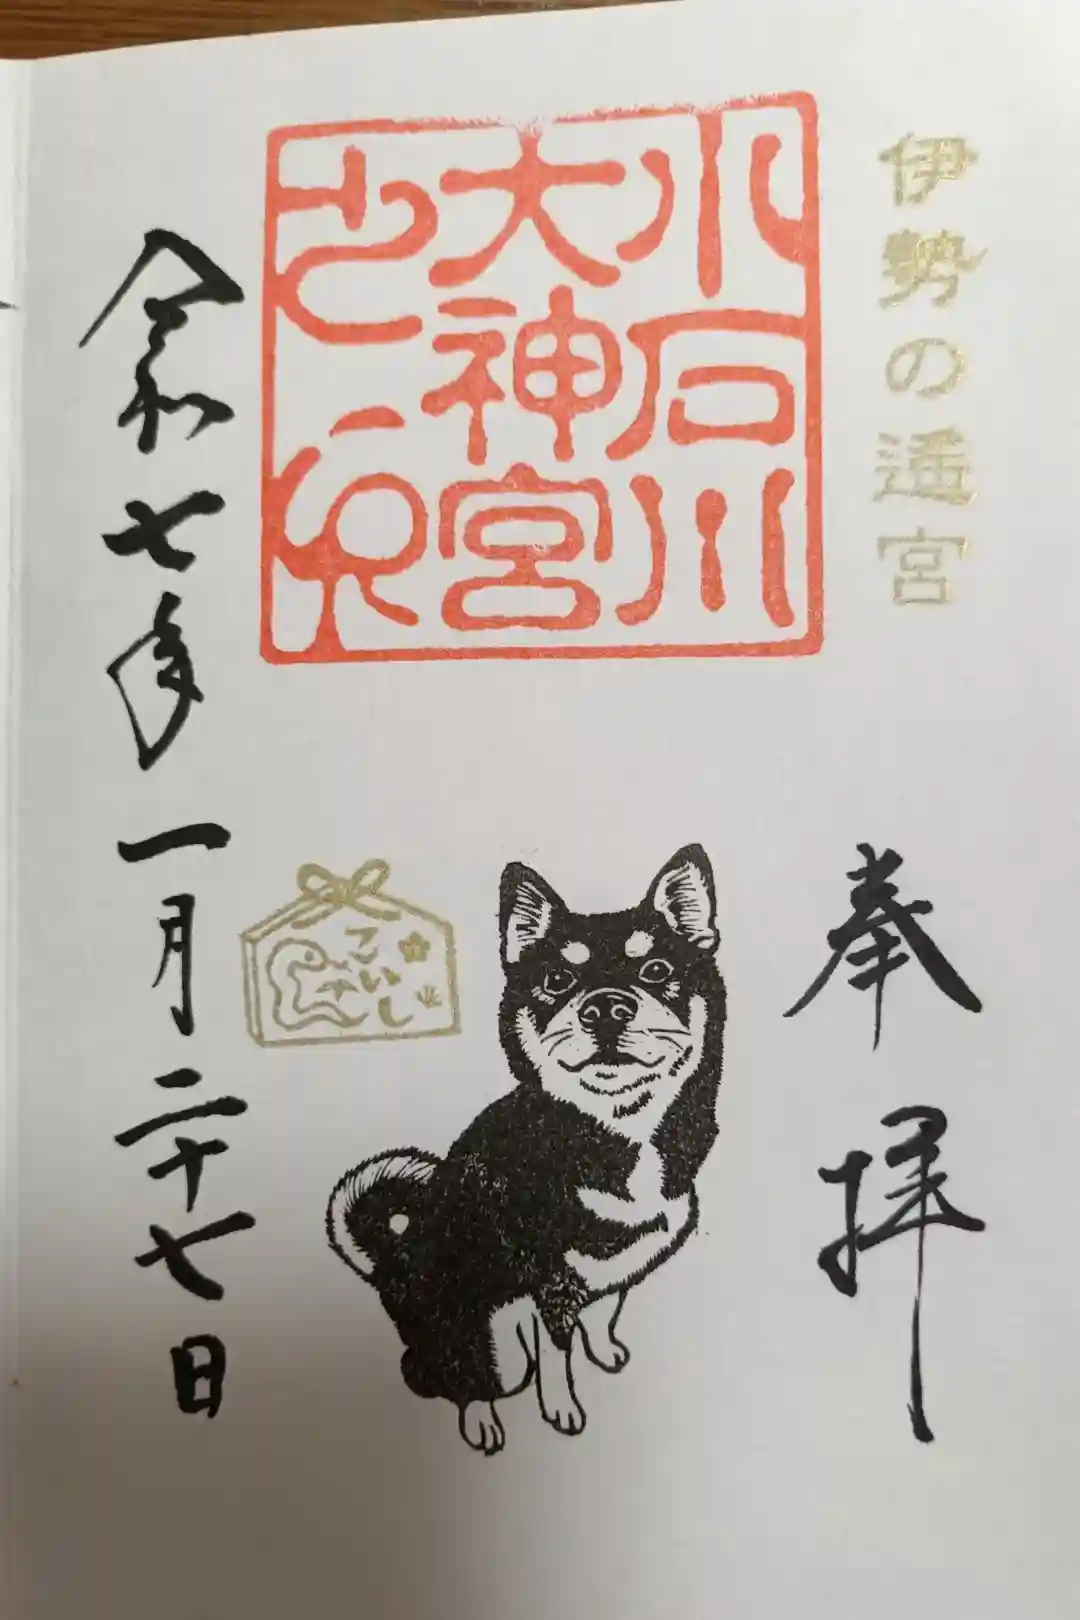 伊勢の遥宮
奉拝
小石川
大神宮
之印
こいし
令和七年一月二十七日